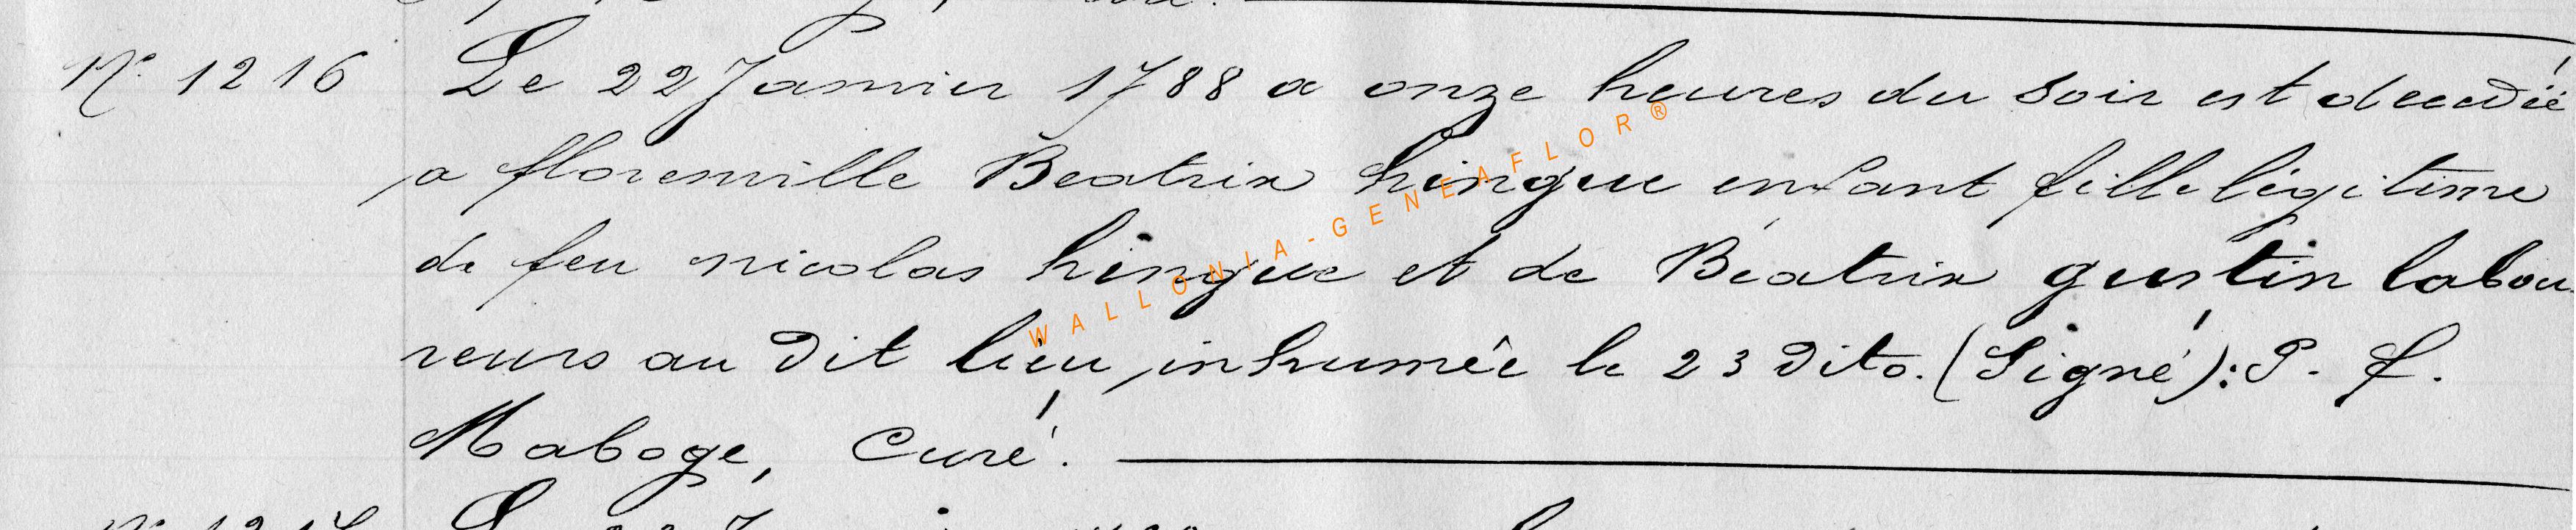 N° 1216 Le 22 Janvier 1788 a onze heures du soir est decedéé
a florenville Beatrix hingue enfant fille légitime
de feu nicolas hingue et de Béatrix gustin labou-
reurs au dit lieu, inhumée le 23 dito. (Signé): P. f.
Maboge, Curé.
WALLONIA-GENEAFLOR®